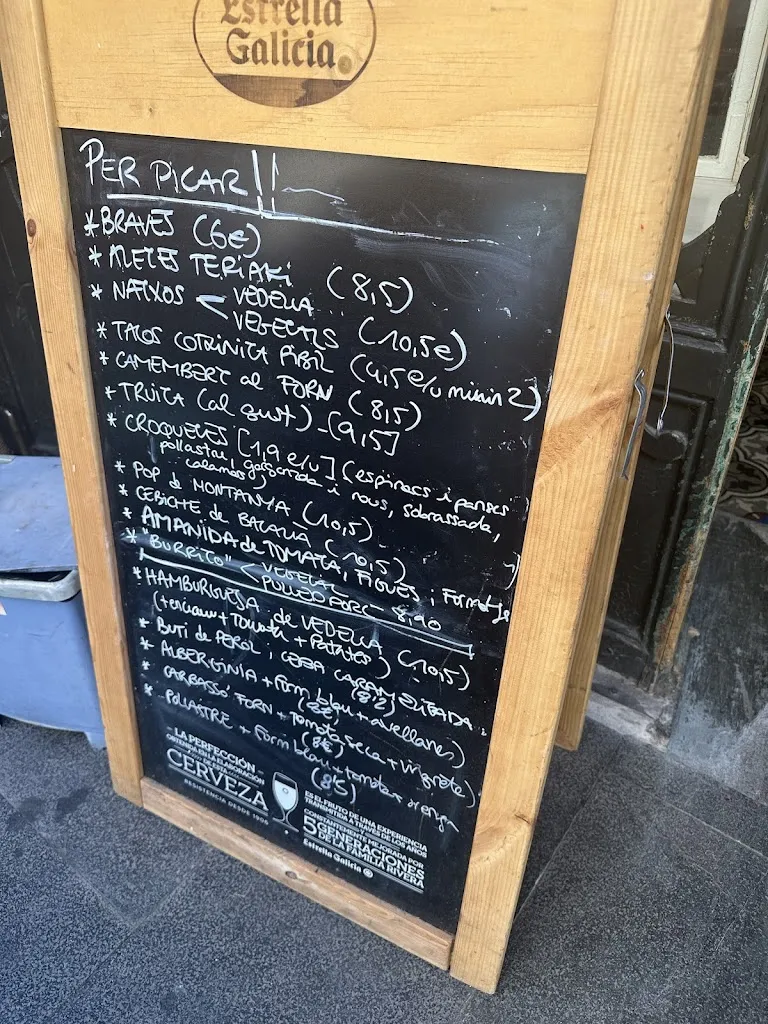 Estrella
Galicia
PER PICAR!!
* BRAVES (6€)
* ALETES TERIAKI (8,5)
* NATXOS < VEDELLA
VEGETALS (10,5€)
* TACOS COTXINITA PIBIL (4,5€/u minim 2)
* CAMEMBERT al FORN (8,5)
* TRUITA (al gust) - [9,5]
* CROQUETES [1,9 e/u] (espinacs i panses
pollastre, gorgonzola i nous, sobrassada,
calamars)
* POP de MONTANYA (10,5)
* CEBICHE de BACALLÀ (10,5)
* AMANIDA de TOMATA, FIGUES i Formatge
* "BURRITO" < VEGETAL
PULLED PORC 8,90
* HAMBURGUESA de VEDELLA (10,5)
( + Tomata + Patates)
* BUTI de PEROL i CEBA CARAMELITZADA
* ALBERGINIA + form blau + avellanes)
* CARBASSÓ FORN + tomata seca + vinagreta)
(8€)
* POLLASTRE + form blau + tomata +
(8,5)
LA PERFECCIÓN
OBTENIDA EN LA ELABORACIÓN
DE ESTA
CERVEZA
RESISTENCIA DESDE 1906
ES EL FRUTO DE UNA EXPERIENCIA
TRANSMITIDA A TRAVÉS DE LOS AÑOS
Y
CONSTANTEMENTE MEJORADA POR
5 GENERACIONES
DE LA FAMILIA RIVERA
Estrella Galicia